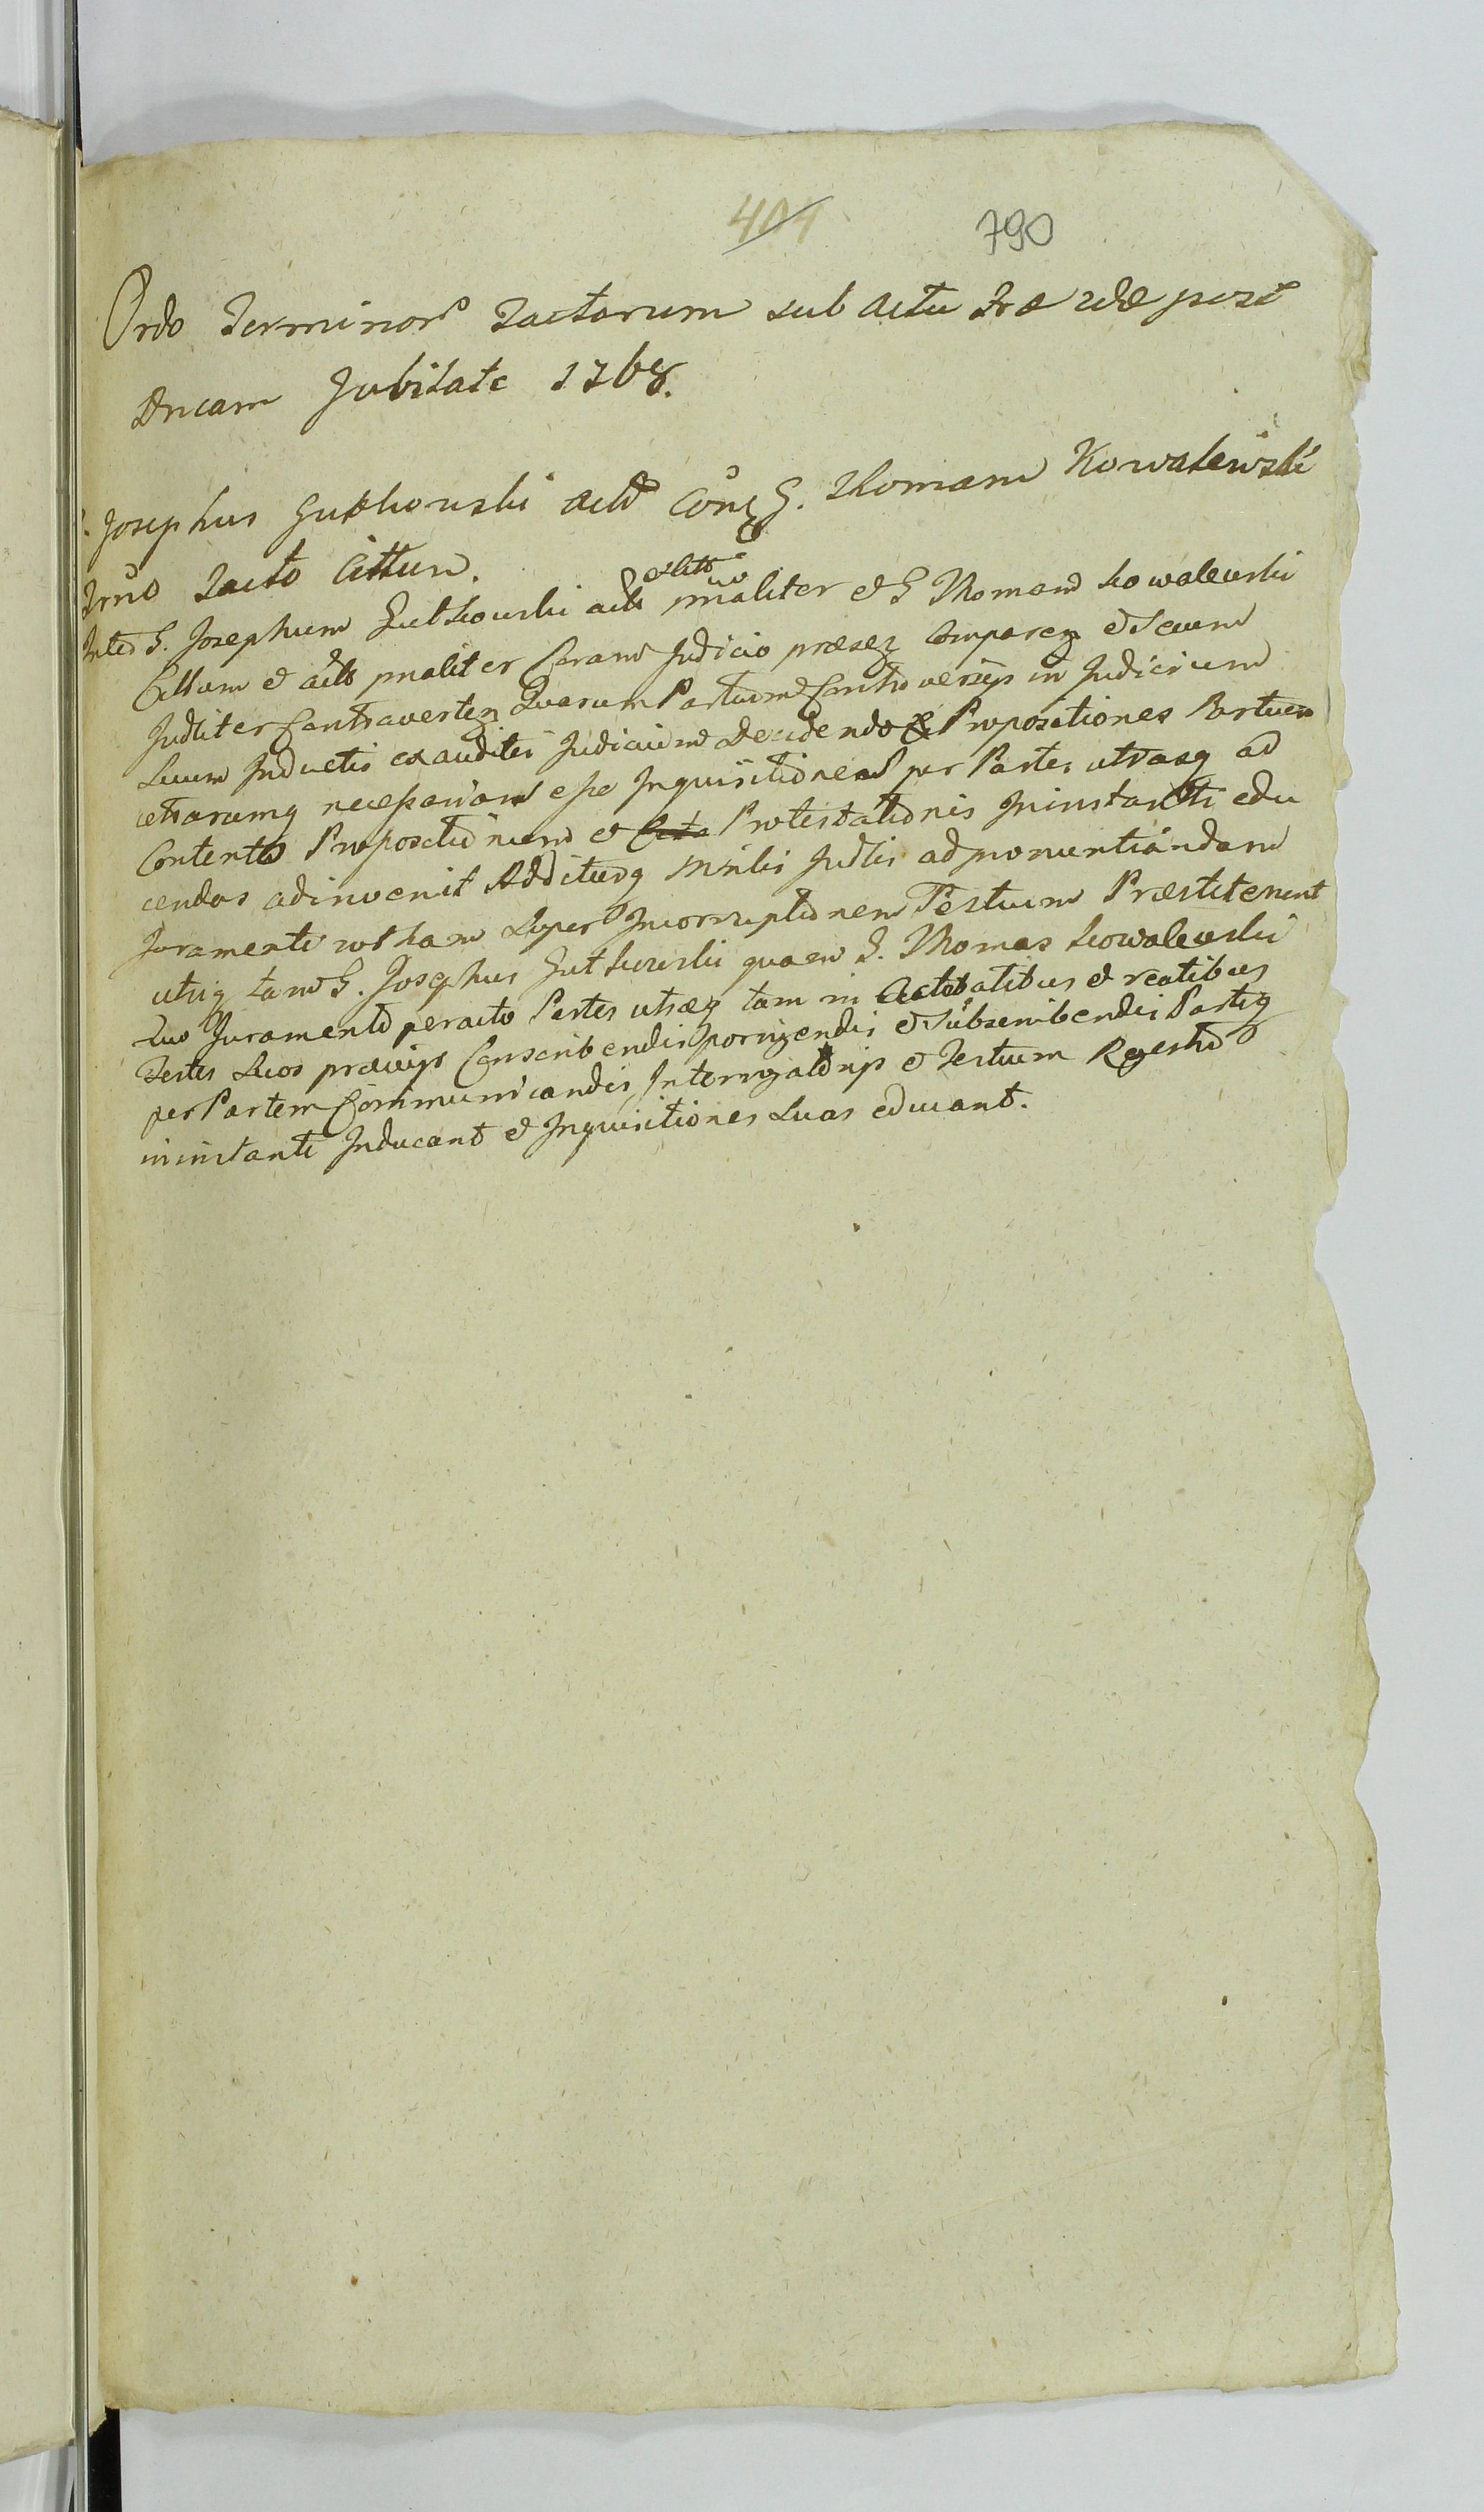 401 790
Ordo Terminor Tactorum sub actu Fræ 2dæ post
Dncam Jubilate 1768.
G. Josephus Gutkowski actr Conq G. Thomam Kowalewski
Trno Tacto Cittum.
Inter G. Josephum Gutkowski acto pnaliter & G Thomam Kowalewski
Cittum & acto pnaliter Coram Judicio præsez Comparez & Seuum
Judliter Controvertez Quarum Partium Controversijs in Judicium
Suum Inductis exauditis Judicium Decidendo Propositiones Partium
utrarumq necessariam esse Inquisitionem per Partes utrasq ad
Contenta Propositionum & Protestationis Ininstanti edu
cendas adinvenit Additurq Mnlis Judlis ad pronuntiandam
Juramenti rotham Super Incorruptionem Testium Præstiterunt
utriq tam G. Josephus Gutkowski quam G. Thomas Kowalewski
Quo Juramento peracto Partes utræq tam in Actoratibus & reatibus
Testes Suos prævijs Conscribendis porrigendis & Subscribendis Partiq
per Partem Communicandis Interrogatorijs & Testium Regestro
ininstanti Inducant & Inquisitiones Suas educant.